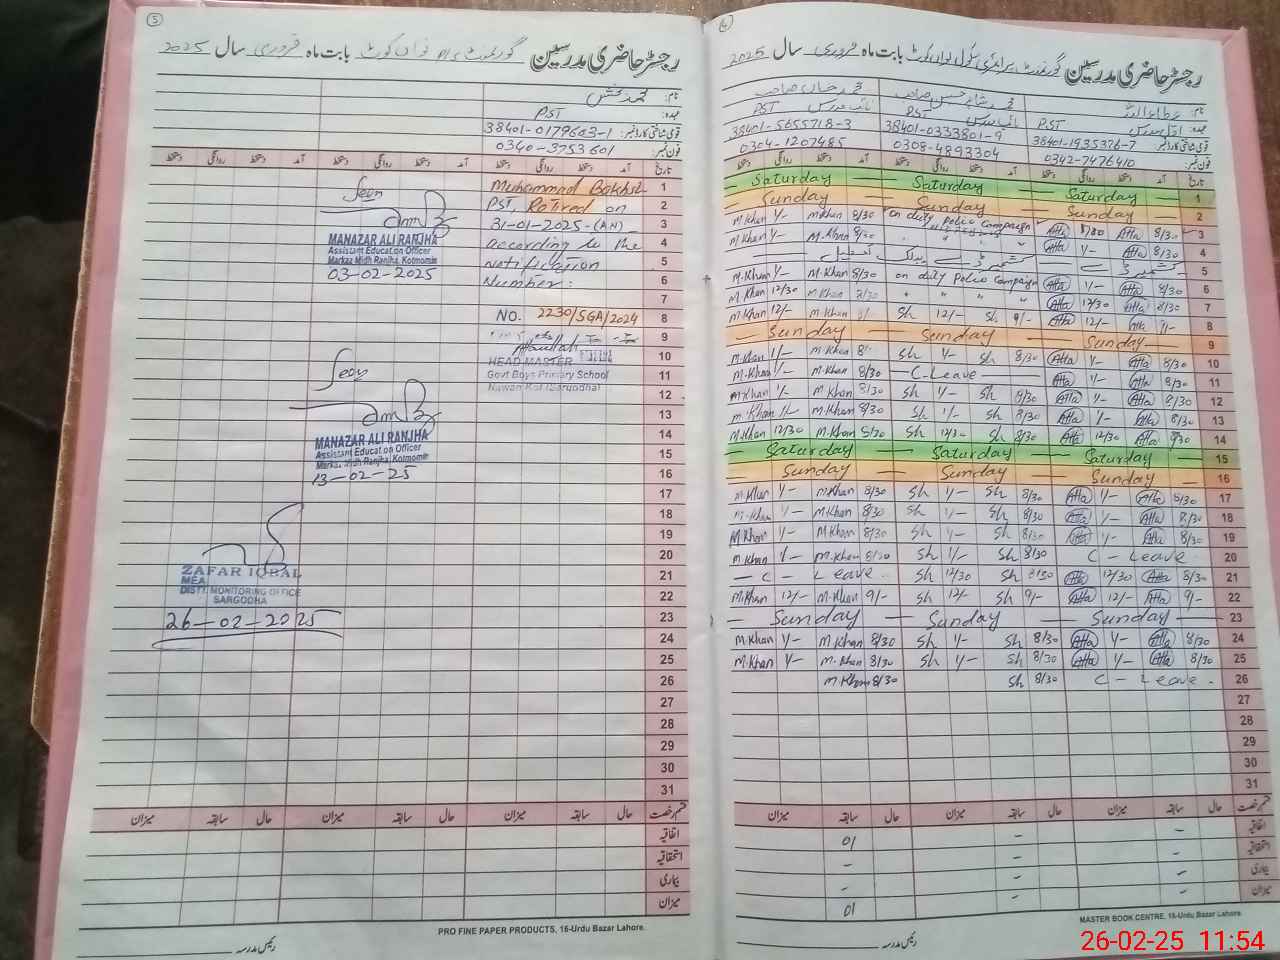 5
رجسٹر حاضری مدرسین گورنمنٹ P/S نواں کوٹ بابت ماہ فروری سال 2025
نام: محمد بخش
عہدہ: PST
قومی شناختی کارڈ نمبر: 38401-0179603-1
فون نمبر: 0340-3753601
تاریخ آمد دستخط روانگی دستخط آمد دستخط روانگی دستخط آمد دستخط روانگی دستخط
1 Muhammad Bakhsh
2 PST Retired on
3 31-01-2025-(AN)
4 according to the
5 notification
6 Number:
7
8 NO. 2230/SGA/2024
9
10 HEAD MASTER
11 Govt Boys Primary School
12 Nawan Kot (Sargodha)
13
14
15
16
17
18
19
20
21
22
23
24
25
26
27
28
29
30
31
Seen
MANAZAR ALI RANJHA
Assistant Education Officer
Markaz Midh Ranjha, Kotmomin
03-02-2025
Seen
MANAZAR ALI RANJHA
Assistant Education Officer
Markaz Midh Ranjha, Kotmomin
13-02-25
ZAFAR IQBAL
MEA
DISTT. MONITORING OFFICE
SARGODHA
26-02-2025
قسم رخصت حال سابقہ میزان حال سابقہ میزان حال سابقہ میزان
اتفاقیہ
استحقاقیہ
بیماری
میزان
PRO FINE PAPER PRODUCTS, 16-Urdu Bazar Lahore.
رئیس مدرسہ
4
رجسٹر حاضری مدرسین گورنمنٹ پرائمری سکول نواں کوٹ بابت ماہ فروری سال 2025
نام: عطاء اللہ محمد شاہر حسن صاحب محمد خان صاحب
عہدہ: اول مدرس PST نائب مدرس PST نائب مدرس PST
قومی شناختی کارڈ نمبر: 38401-1935376-7 38401-0333801-9 38401-5655718-3
فون نمبر: 0342-7476410 0308-4893304 0304-1207485
تاریخ آمد دستخط روانگی دستخط آمد دستخط روانگی دستخط آمد دستخط روانگی دستخط
Saturday — Saturday — Saturday 1
Sunday — Sunday — Sunday 2
M.Khan 1/- M.Khan 8/30 on duty Polio Campaign Atta 1/30 Atta 8/30 3
M.Khan 1/- M.Khan 8/30 " " " " Atta 1/- Atta 8/30 4
کشمیر ڈے 5
M.Khan 1/- M.Khan 8/30 on duty Polio Campaign Atta 1/- Atta 8/30 6
M.Khan 12/30 M.Khan 8/30 " " " " Atta 12/30 Atta 8/30 7
M.Khan 12/- M.Khan 9/- Sh 12/- Sh 9/- Atta 12/- Atta 9/- 8
Sunday — Sunday — Sunday 9
M.Khan 1/- M.Khan 8/- Sh 1/- Sh 8/30 Atta 1/- Atta 8/30 10
M.Khan 1/- M.Khan 8/30 — C-Leave — Atta 1/- Atta 8/30 11
M.Khan 1/- M.Khan 8/30 Sh 1/- Sh 8/30 Atta 1/- Atta 8/30 12
M.Khan 1/- M.Khan 8/30 Sh 1/- Sh 8/30 Atta 1/- Atta 8/30 13
M.Khan 12/30 M.Khan 8/30 Sh 12/30 Sh 8/30 Atta 12/30 Atta 8/30 14
Saturday — Saturday — Saturday 15
Sunday — Sunday — Sunday 16
M.Khan 1/- M.Khan 8/30 Sh 1/- Sh 8/30 Atta 1/- Atta 8/30 17
M.Khan 1/- M.Khan 8/30 Sh 1/- Sh 8/30 Atta 1/- Atta 8/30 18
M.Khan 1/- M.Khan 8/30 Sh 1/- Sh 8/30 Atta 1/- Atta 8/30 19
M.Khan 1/- M.Khan 8/30 Sh 1/- Sh 8/30 C - Leave 20
— C - Leave Sh 12/30 Sh 8/30 Atta 12/30 Atta 8/30 21
M.Khan 12/- M.Khan 9/- Sh 12/- Sh 9/- Atta 12/- Atta 9/- 22
Sunday — Sunday — Sunday 23
M.Khan 1/- M.Khan 8/30 Sh 1/- Sh 8/30 Atta 1/- Atta 8/30 24
M.Khan 1/- M.Khan 8/30 Sh 1/- Sh 8/30 Atta 1/- Atta 8/30 25
M.Khan 8/30 Sh 8/30 C - Leave 26
27
28
29
30
31
قسم رخصت حال سابقہ میزان حال سابقہ میزان حال سابقہ میزان
اتفاقیہ - - 01
استحقاقیہ - - -
بیماری - - -
میزان - - 01
MASTER BOOK CENTRE, 16-Urdu Bazar Lahore.
رئیس مدرسہ
26-02-25 11:54